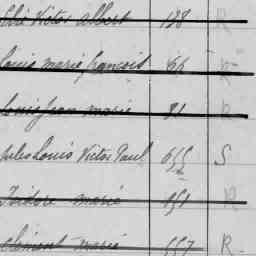 Victor Albert 178 R
Louis Marie François 66 R
Louis Jean Marie 31 R
Jules Louis Victor Paul 655 S
Isidore Marie 151 R
Clément Marie 557 R